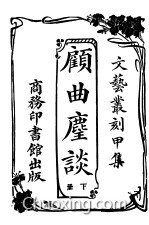 文藝叢刻甲集
顧曲麈談
下冊
商務印書館出版
Chaoxing.com